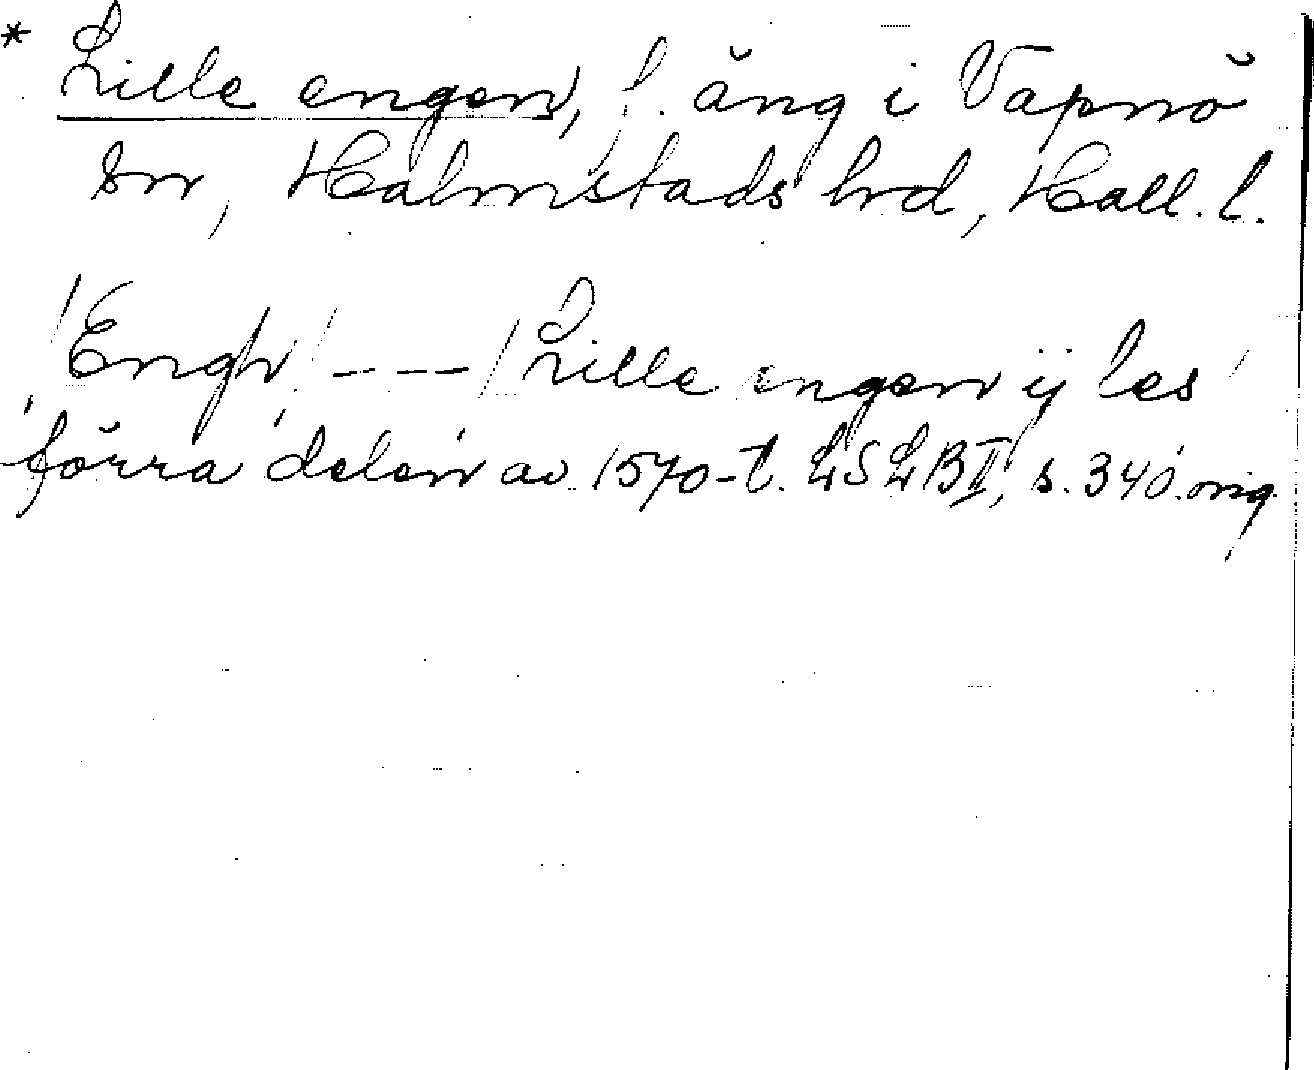 * Lille engen, f. äng i Vapnö
sn, Halmstads hd, Hall. l.
/Engh/ --- / Lille engen ij les /
förra delen av 1570-t. LSLB II, s. 340. orig.